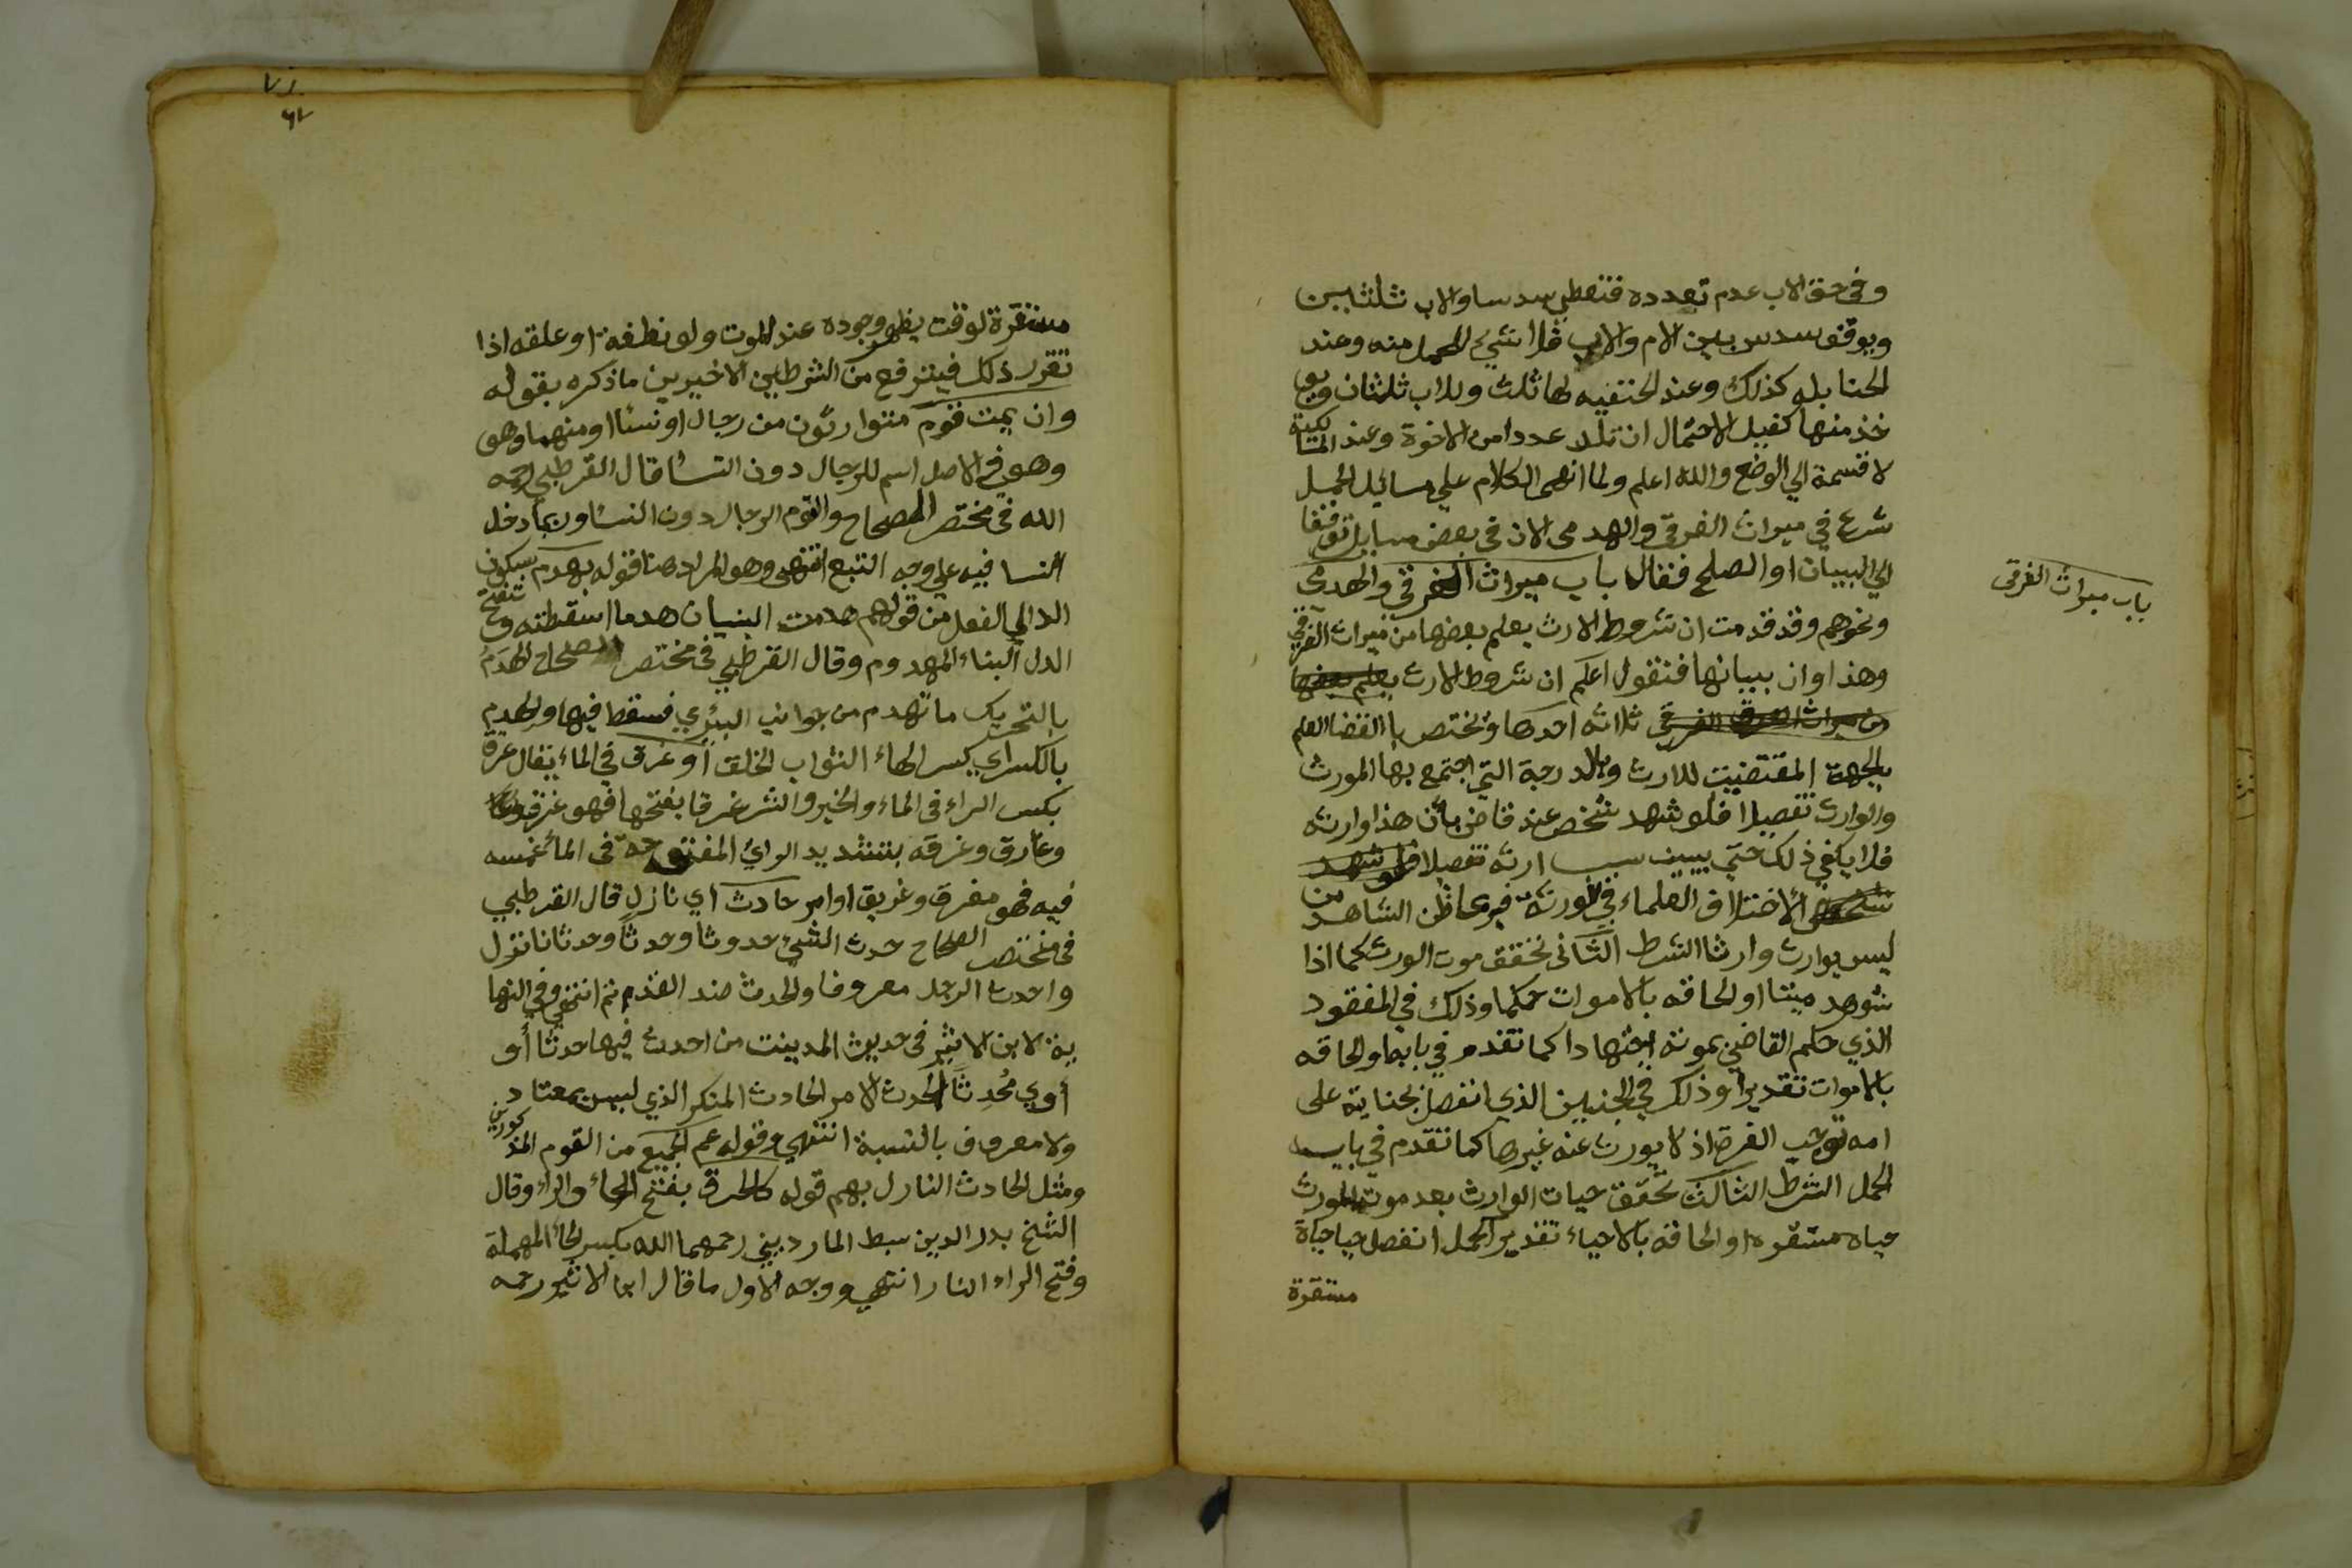 وفي حق الاب عدم تعدده فتعطي سدسا والاب ثلثيين
ويوقف سدس بين الام والاب فلا شيء للحمل منه وعند
الحنابله كذلك وعند الحنفيه لها ثلث وللاب ثلثان ويو
خذ منها كفيل لاحتمال ان تلد عددا من الاخوة وعند المالكية
لا قسمة الي الوضع والله اعلم ولما انهى الكلام علي مسائيل الحمل
شرع في ميراث الغرقي والهدمى الان في بعض مسايل توقفا
الي البيان او الصلح فقال باب ميراث الغرقي والهدمى
ونحوهم وقد قدمت ان شروط الارث يعلم بعضها من ميراث الغرقي
وهذا اوان بيانها فنقول اعلم ان شروط الارث يعلم بعضها
من ميراث الغرقي ثلاثه احدها وتختص بالقضا العلم
بالجهة المقتضيت للارث وبالدرجة التي اجتمع بها المورث
والوارث تفصيلا فلو شهد شخص عند قاض بأن هذا وارثه
فلا يكفي ذلك حتي يبين سبب ارثه تفصيلا فلو شهد
شخص لاختلاف العلماء في الورثة فربما ظن الشاهد من
ليس بوارث وارثا الشرط الثاني تحقق موت المورث كما اذا
شوهد ميتا او الحاقه بالاموات حكما وذلك في المفقود
الذي حكم القاضي بموته اجتهادا كما تقدم في بابه او الحاقه
بالاموات تقديرا وذلك في الجنيين الذي انفصل بجناية على
امه توجب الغرة اذ لا يورث عنه غيرها كما تقدم في باب
الحمل الشرط الثالث تحقق حيات الوارث بعد موت المورث
حياه مستقره او الحاقه بالاحياء تقديرا كحمل انفصل حيا حياة
مستقرة
باب ميراث الغرقى
مستقرة لوقت يظهر وجوده عند الموت ولو نطفة او علقه اذا
تقرر ذلك فيترفع من الشرطين الاخيرين ما ذكره بقوله
وان يمت قوم متوارثون من رجال او نسا او منهما وهو
وهو في الاصل اسم للرجال دون النسا قال القرطبي رحمه
الله في مختصر الصحاح والقوم الرجال دون النسا وربما دخل
النسا فيه علي وجه التبع انتهى وهو المراد هنا قوله بهدم بسكون
الدال الفعل من قولهم هدمت البنيان هدما اسقطته وبفتح
الدال البناء المهدوم وقال القرطبي في مختصر الصحاح الهدَمُ
بالتحريك ما تهدم من جوانب البئر فسقط فيها والهدم
بالكسر اي بكسر الهاء الثواب الخلق أو غرق في الماء يقال غرق
بكسر الراء في الماء والخير والشر غرقا بفتحها فهو غرق
وغارق وغرقه بتشديد الراي المفتوحة في الماء غمسه
فيه فهو مغرق وغريق او امر حادث اي نازل قال القرطبي
في مختصر الصحاح حدث الشيء حدوثا وحدثا وحدثانا نزل
واحدث الرجل معروفا والحدث ضد القدم ثم انتهى وفي النها
ية لابن الاثير في حديث المدينت من احدث فيها حدثا أو
أوي مُحدِثًا الحدث الامر الحادث المنكر الذي ليس بمعتاد
ولا معروف بالنسبة انتهي وقوله عم الجميع من القوم المذكورين
ومثل الحادث النازل بهم قوله كالحرق بفتح الحاء والراء وقال
الشيخ بدر الدين سبط المارديني رحمهما الله بكسر الحاء المهملة
وفتح الراء النار انتهي ووجه الاول ما قال ابن الاثير رحمه